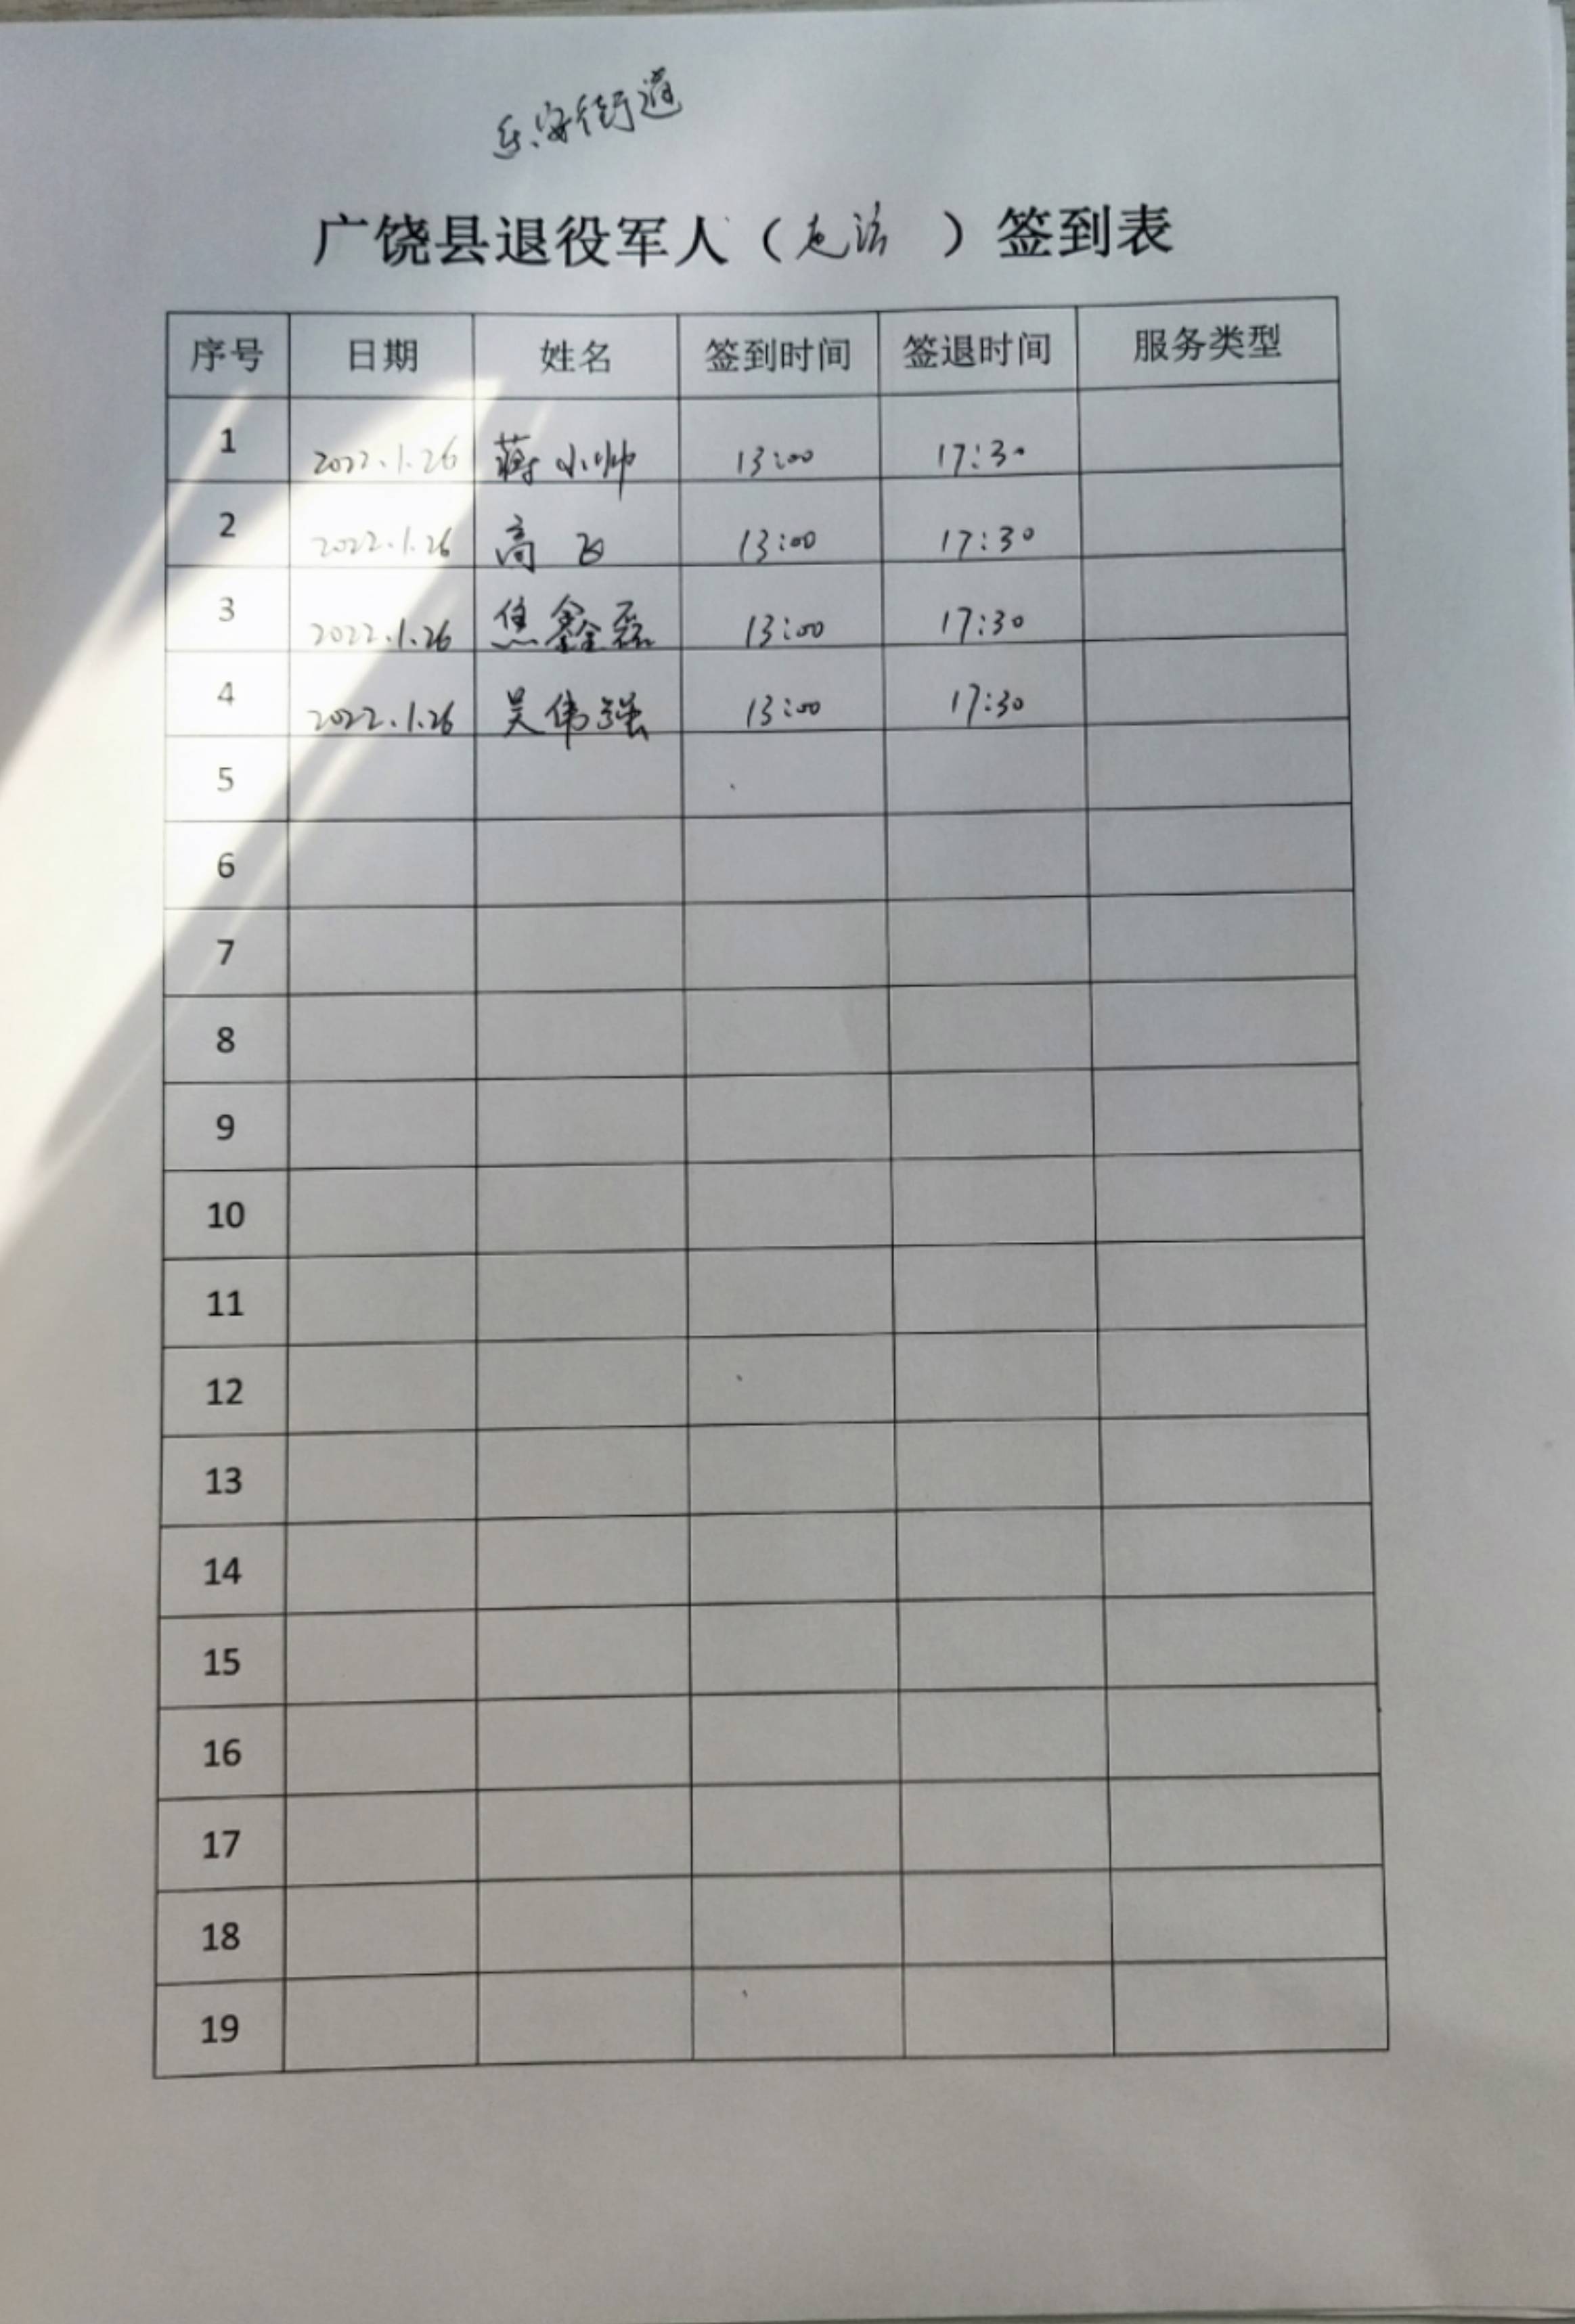 乐安街道
广饶县退役军人（ ）签到表
序号 日期 姓名 签到时间 签退时间 服务类型
1 2022.1.26 蒋小帅 13:00 17:30
2 2022.1.26 高飞 13:00 17:30
3 2022.1.26 焦鑫磊 13:00 17:30
4 2022.1.26 吴伟强 13:00 17:30
5
6
7
8
9
10
11
12
13
14
15
16
17
18
19